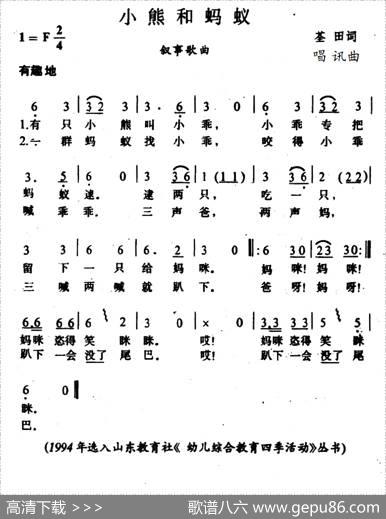 小熊和蚂蚁
1=F 2/4
叙事歌曲
荃 田词
唱 讯曲
有趣地
6 3 | 3 2 3 | 3 . 6 | 3 0 | 6 3 | 3 2 3 |
1.有 只 小 熊 叫 小 乖, 小 乖 专 把
2.一 群 蚂 蚁 找 小 乖, 咬 得 小 乖
3. 5 | 6 0 | 3 3 6 | 1 (1 1) | 3 3 6 | 2 (2 2) |
蚂 蚁 逮. 逮 两 只, 吃 一 只,
喊 乖 乖. 三 声 爸, 两 声 妈,
3 3 | 6 6 | 6. 2 | 3 0 ‖: 6 30 | 3 3 30 :‖
留 下 一 只 给 妈 咪. 妈 咪! 妈 咪!
三 喊 两 喊 就 趴 下. 爸 呀! 妈 呀!
6.6 66 | 6 2 | 3 0 | × 0 | 3.3 33 | 5 5 |
妈咪 恣得 笑 眯 眯. 哎! 妈咪 恣得 笑 眯
趴下 一会 没了 尾 巴. 哎! 趴下 一会 没了 尾
6 0 ‖
眯.
巴.
(1994年选入山东教育社《 幼儿综合教育四季活动》丛书)
高清下载 >>>
歌谱八六 www.gepu86.com